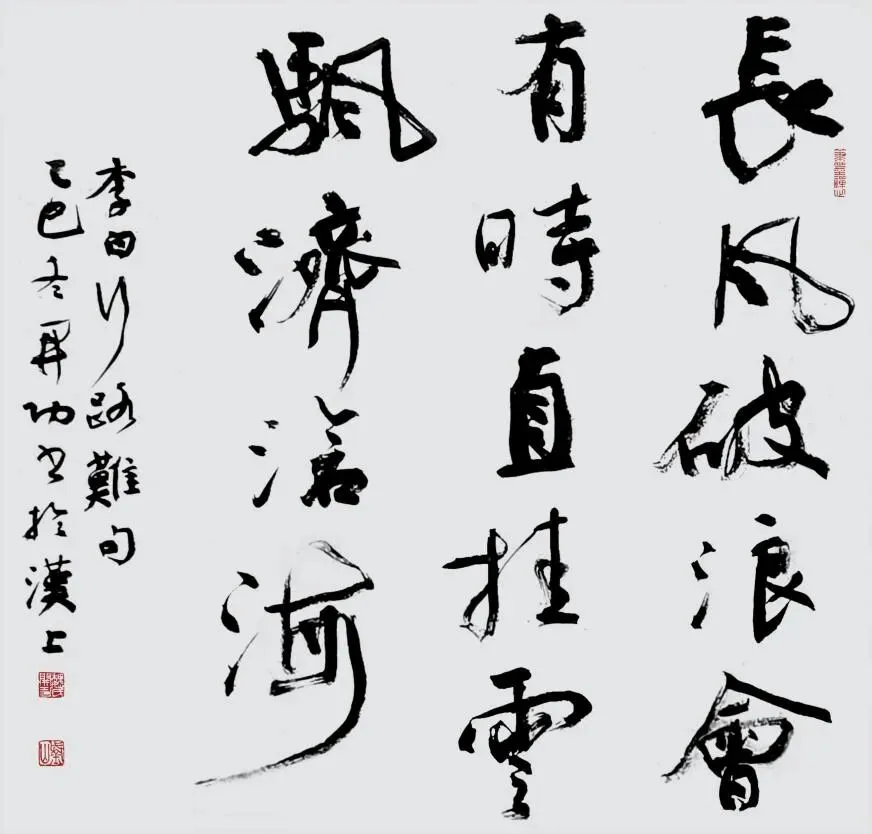 長風破浪會
有時直挂雲
颿濟滄海
李白行路難句
乙巳冬開功書於漢上